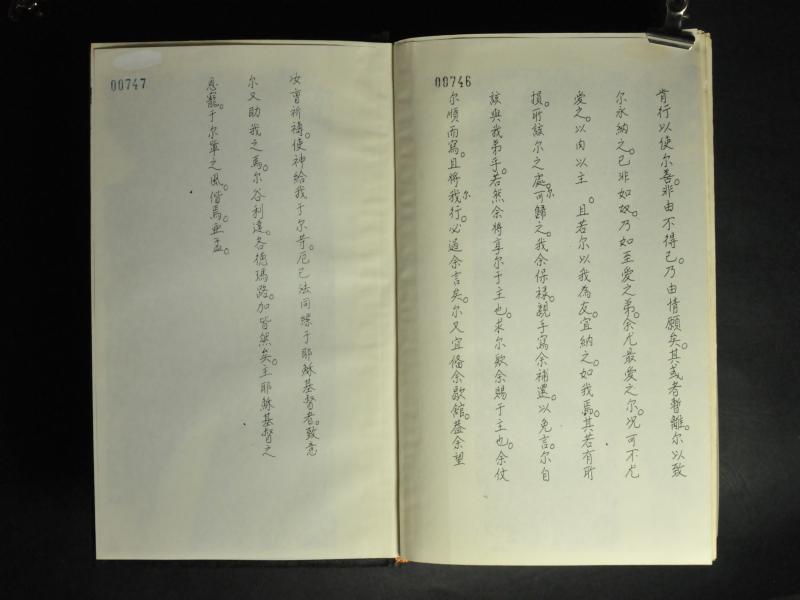 00746
肯行以使尔善。非由不得已。乃由情願矣。其或者暫離尔以致
尔永納之。已非如奴。乃如至愛之弟。余尤最愛之尔。况可不尤
愛之。以肉以主。且若尔以我為友。宜納之。如我焉。其若有所
損。所該尔之處。尔可歸之。我余保祿。親手寫余補還。以免言。尔自
該與我弟乎。若然余將享尔于主也。求尔歇余賜于主也。余仗
尔順而寫。且將我尔行。必過余言矣。尔又宜俻余歇舘。葢余望
00747
汝曹祈禱。使神給我于尔等。厄巴法同縲于耶穌基督者。致意
尔又助我之馬尔谷利達。各德瑪路。加皆然矣。主耶穌基督之
恩寵。于尔軰之風。偕焉。亞孟。